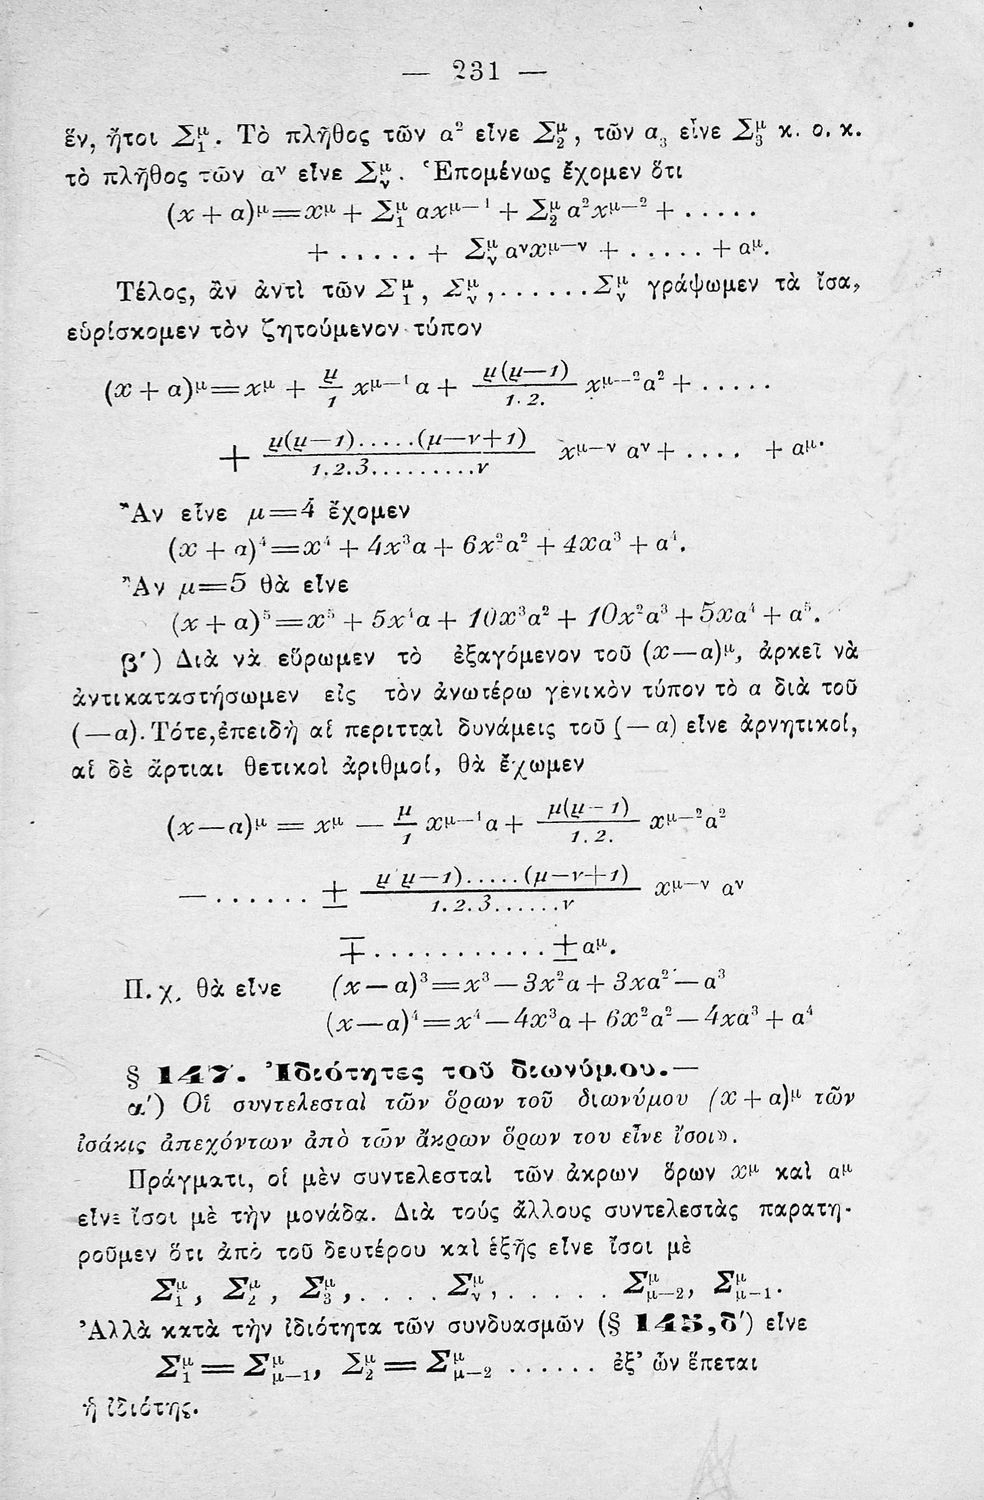 — 231 —
ἕν, ἤτοι Σ₁^μ. Τὸ πλῆθος τῶν α² εἶνε Σ₂^μ, τῶν α₃ εἶνε Σ₃^μ κ. ο. κ.
τὸ πλῆθος τῶν α^ν εἶνε Σ_ν^μ. Ἑπομένως ἔχομεν ὅτι
(x + α)^μ = x^μ + Σ₁^μ αx^μ—1 + Σ₂^μ α²x^μ—2 + .....
+ ..... + Σ_ν^μ α^νx^μ—ν + ...... + α^μ.
Τέλος, ἂν ἀντὶ τῶν Σ₁^μ, Σ_ν^μ,......Σ_ν^μ γράψωμεν τὰ ἴσα,
εὑρίσκομεν τὸν ζητούμενον τύπον
(x + α)^μ = x^μ + μ/1 x^μ—1 α + μ(μ—1)/1.2. x^μ—2 α² + .....
+ μ(μ—1).....(μ—ν+1)/1.2.3.........ν x^μ—ν α^ν + .... + α^μ.
Ἂν εἶνε μ=4 ἔχομεν
(x + α)⁴ = x⁴ + 4x³α + 6x²α² + 4xα³ + α⁴.
Ἂν μ=5 θὰ εἶνε
(x + α)⁵ = x⁵ + 5x⁴α + 10x³α² + 10x²α³ + 5xα⁴ + α⁵.
β΄) Διὰ νὰ εὕρωμεν τὸ ἐξαγόμενον τοῦ (x—α)^μ, ἀρκεῖ νὰ
ἀντικαταστήσωμεν εἰς τὸν ἀνωτέρω γενικὸν τύπον τὸ α διὰ τοῦ
(—α). Τότε,ἐπειδὴ αἱ περιτταὶ δυνάμεις τοῦ (—α) εἶνε ἀρνητικοί,
αἱ δὲ ἄρτιαι θετικοὶ ἀριθμοί, θὰ ἔχωμεν
(x—α)^μ = x^μ — μ/1 x^μ—1 α + μ(μ—1)/1.2. x^μ—2 α²
— ...... ± μ(μ—1).....(μ—ν+1)/1.2.3......ν x^μ—ν α^ν
∓ ............ ± α^μ.
Π.χ. θὰ εἶνε (x—α)³ = x³ — 3x²α + 3xα² — α³
(x—α)⁴ = x⁴ — 4x³α + 6x²α² — 4xα³ + α⁴
§ 147. Ἰδιότητες τοῦ διωνύμου.—
α΄) Οἱ συντελεσταὶ τῶν ὅρων τοῦ διωνύμου (x + α)^μ τῶν
ἰσάκις ἀπεχόντων ἀπὸ τῶν ἄκρων ὅρων του εἶνε ἴσοι».
Πράγματι, οἱ μὲν συντελεσταὶ τῶν ἄκρων ὅρων x^μ καὶ α^μ
εἶνε ἴσοι μὲ τὴν μονάδα. Διὰ τούς ἄλλους συντελεστὰς παρατη-
ροῦμεν ὅτι ἀπὸ τοῦ δευτέρου καὶ ἑξῆς εἶνε ἴσοι μὲ
Σ₁^μ, Σ₂^μ, Σ₃^μ, .... Σ_ν^μ, ...... Σ_μ—2^μ, Σ_μ—1^μ.
Ἀλλὰ κατὰ τὴν ἰδιότητα τῶν συνδυασμῶν (§ 145,δ΄) εἶνε
Σ₁^μ = Σ_μ—1^μ, Σ₂^μ = Σ_μ—2^μ ...... ἐξ᾽ ὧν ἕπεται
ἡ ἰδιότης.